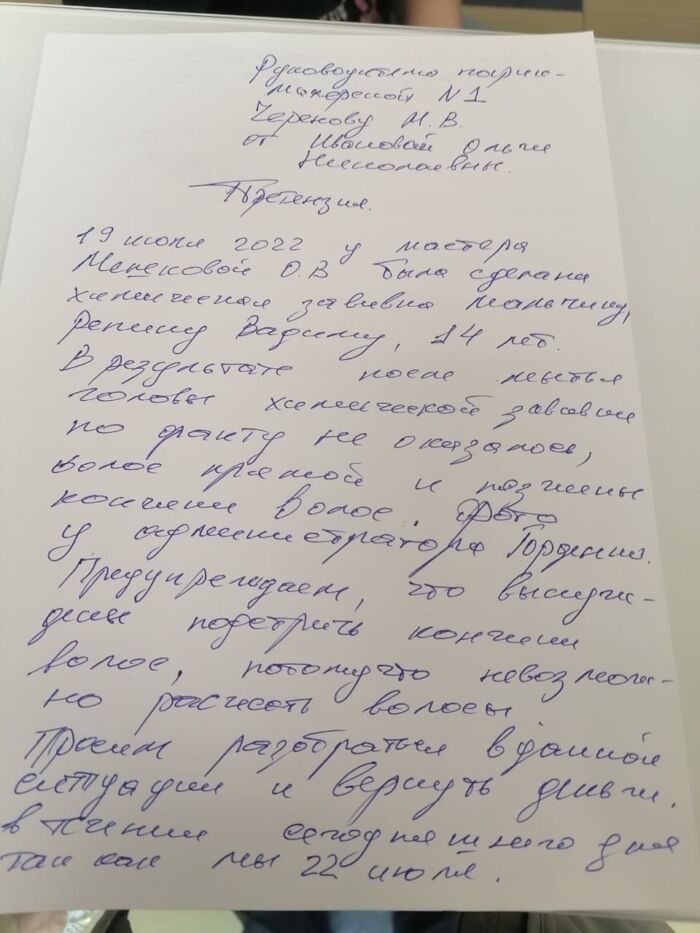 Руководителю парик-
махерской N1
Черенову М. В.
от Ивановой Ольги
Николаевны.
Претензия.
19 июля 2022 у мастера
О.В была сделана
химическая завивка мальчику,
Репину Вадиму, 14 лет.
В результате после мытья
головы химической завивки
по факту не оказалось,
волос прямой и
кончики волос. Фото
у администратора Гордениз.
Предупреждаем, что вынуж-
дены подстричь кончики
волос, потомучто невозмож-
но расчесать волосы.
Просим разобраться в данной
ситуации и вернуть деньги.
в течении сегодняшнего дня
так как мы 22 июля.